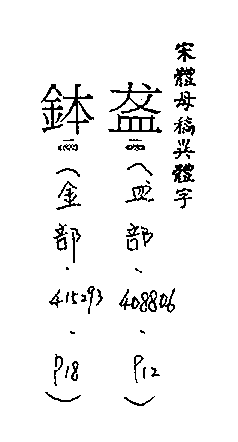 宋體母稿異體字
盋（皿部．408806．P12）
鉢（金部．415293．P18）